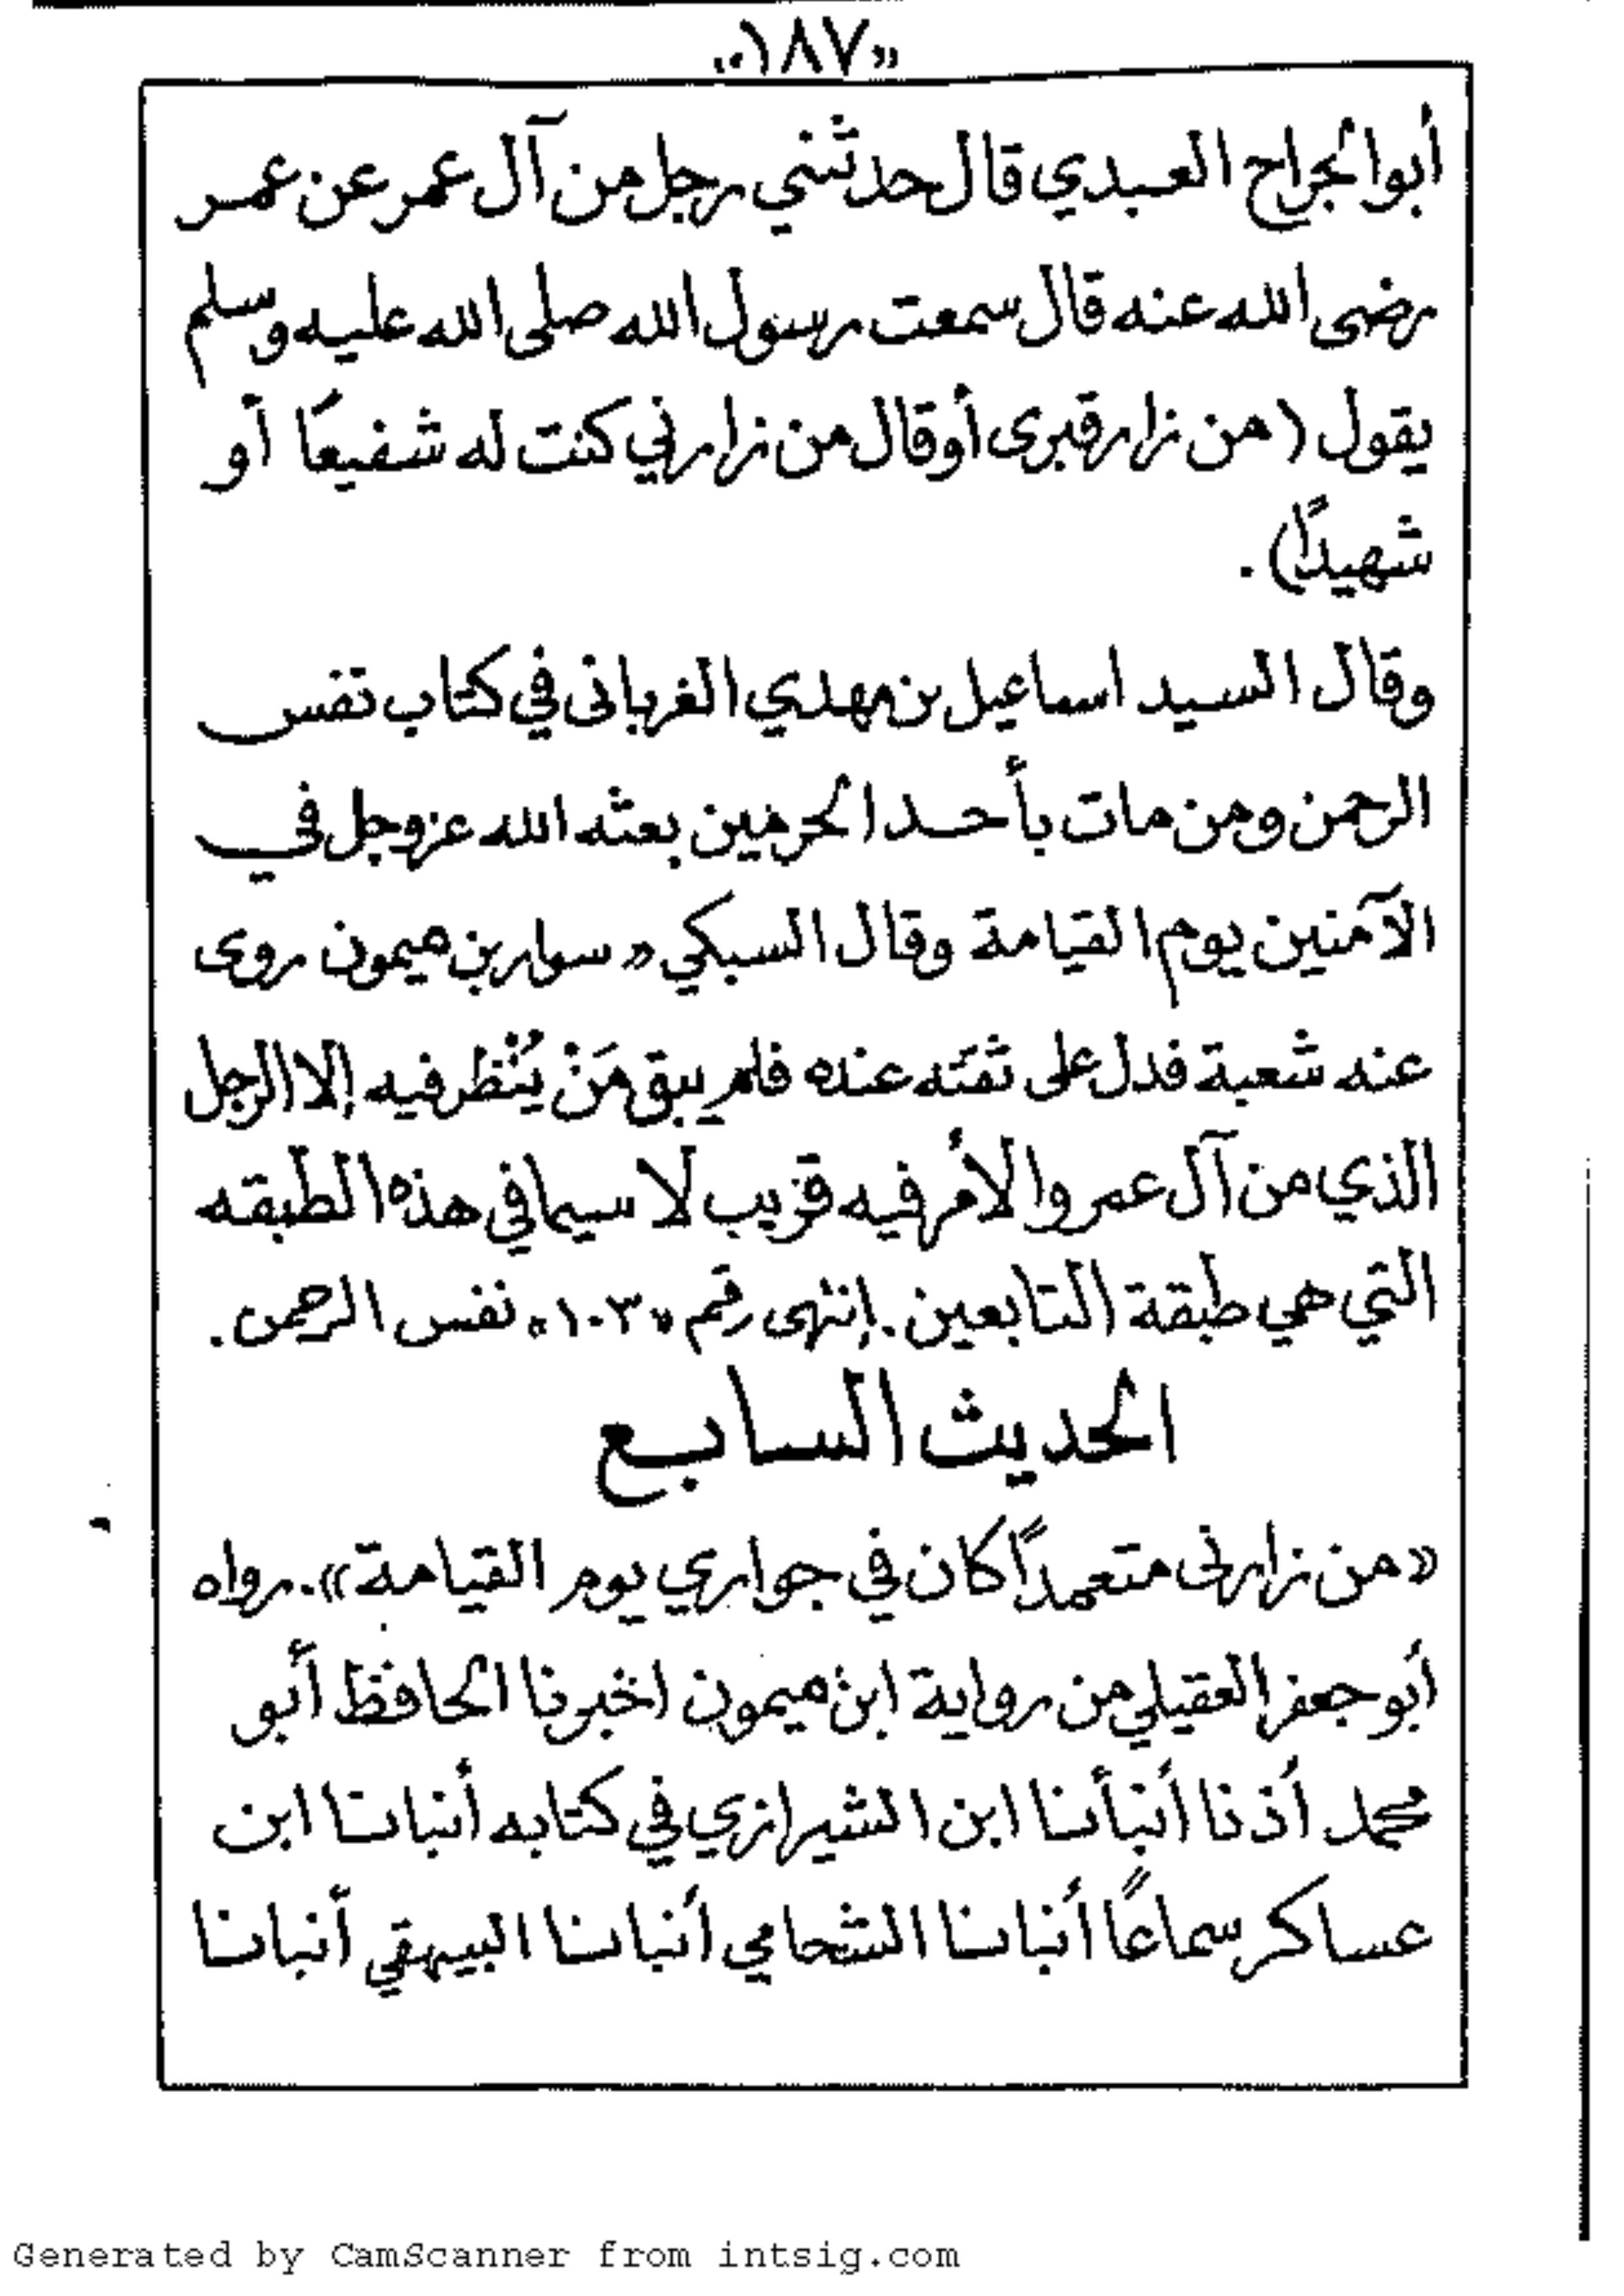 «١٨٧»
أبوالجراح العبدي قال حدثني رجل من آل عمر عن عمر
رضى الله عنه قال سمعت رسول الله صلى الله عليه وسلم
يقول (من زار قبرى أو قال من زارني كنت له شفيعًا أو
شهيدًا).
وقال السيد اسماعيل بن مهدي الغربانى في كتاب نفس
الرحمن ومن مات بأحد الحرمين بعثه الله عز وجل في
الآمنين يوم القيامة وقال السبكي « سوار بن ميمون روى
عنه شعبة فدل على ثقته عنده فلم يبق مَنْ يُنْظر فيه إلا الرجل
الذي من آل عمر والأمر فيه قريب لا سيما في هذه الطبقه
التي هي طبقة التابعين. إنتهى رقم «١٠٣» نفس الرحمن.
الحديث السابع
«من زارنى متعمداً كان في جواري يوم القيامة». رواه
أبو جعفر العقيلي من رواية ابن ميمون اخبرنا الحافظ أبو
محمد أذنا أنبأنا ابن الشيرازي في كتابه أنبانا ابن
عساكر سماعًا أنبانا الشحامي أنبانا البيهقي أنبانا
Generated by CamScanner from intsig.com